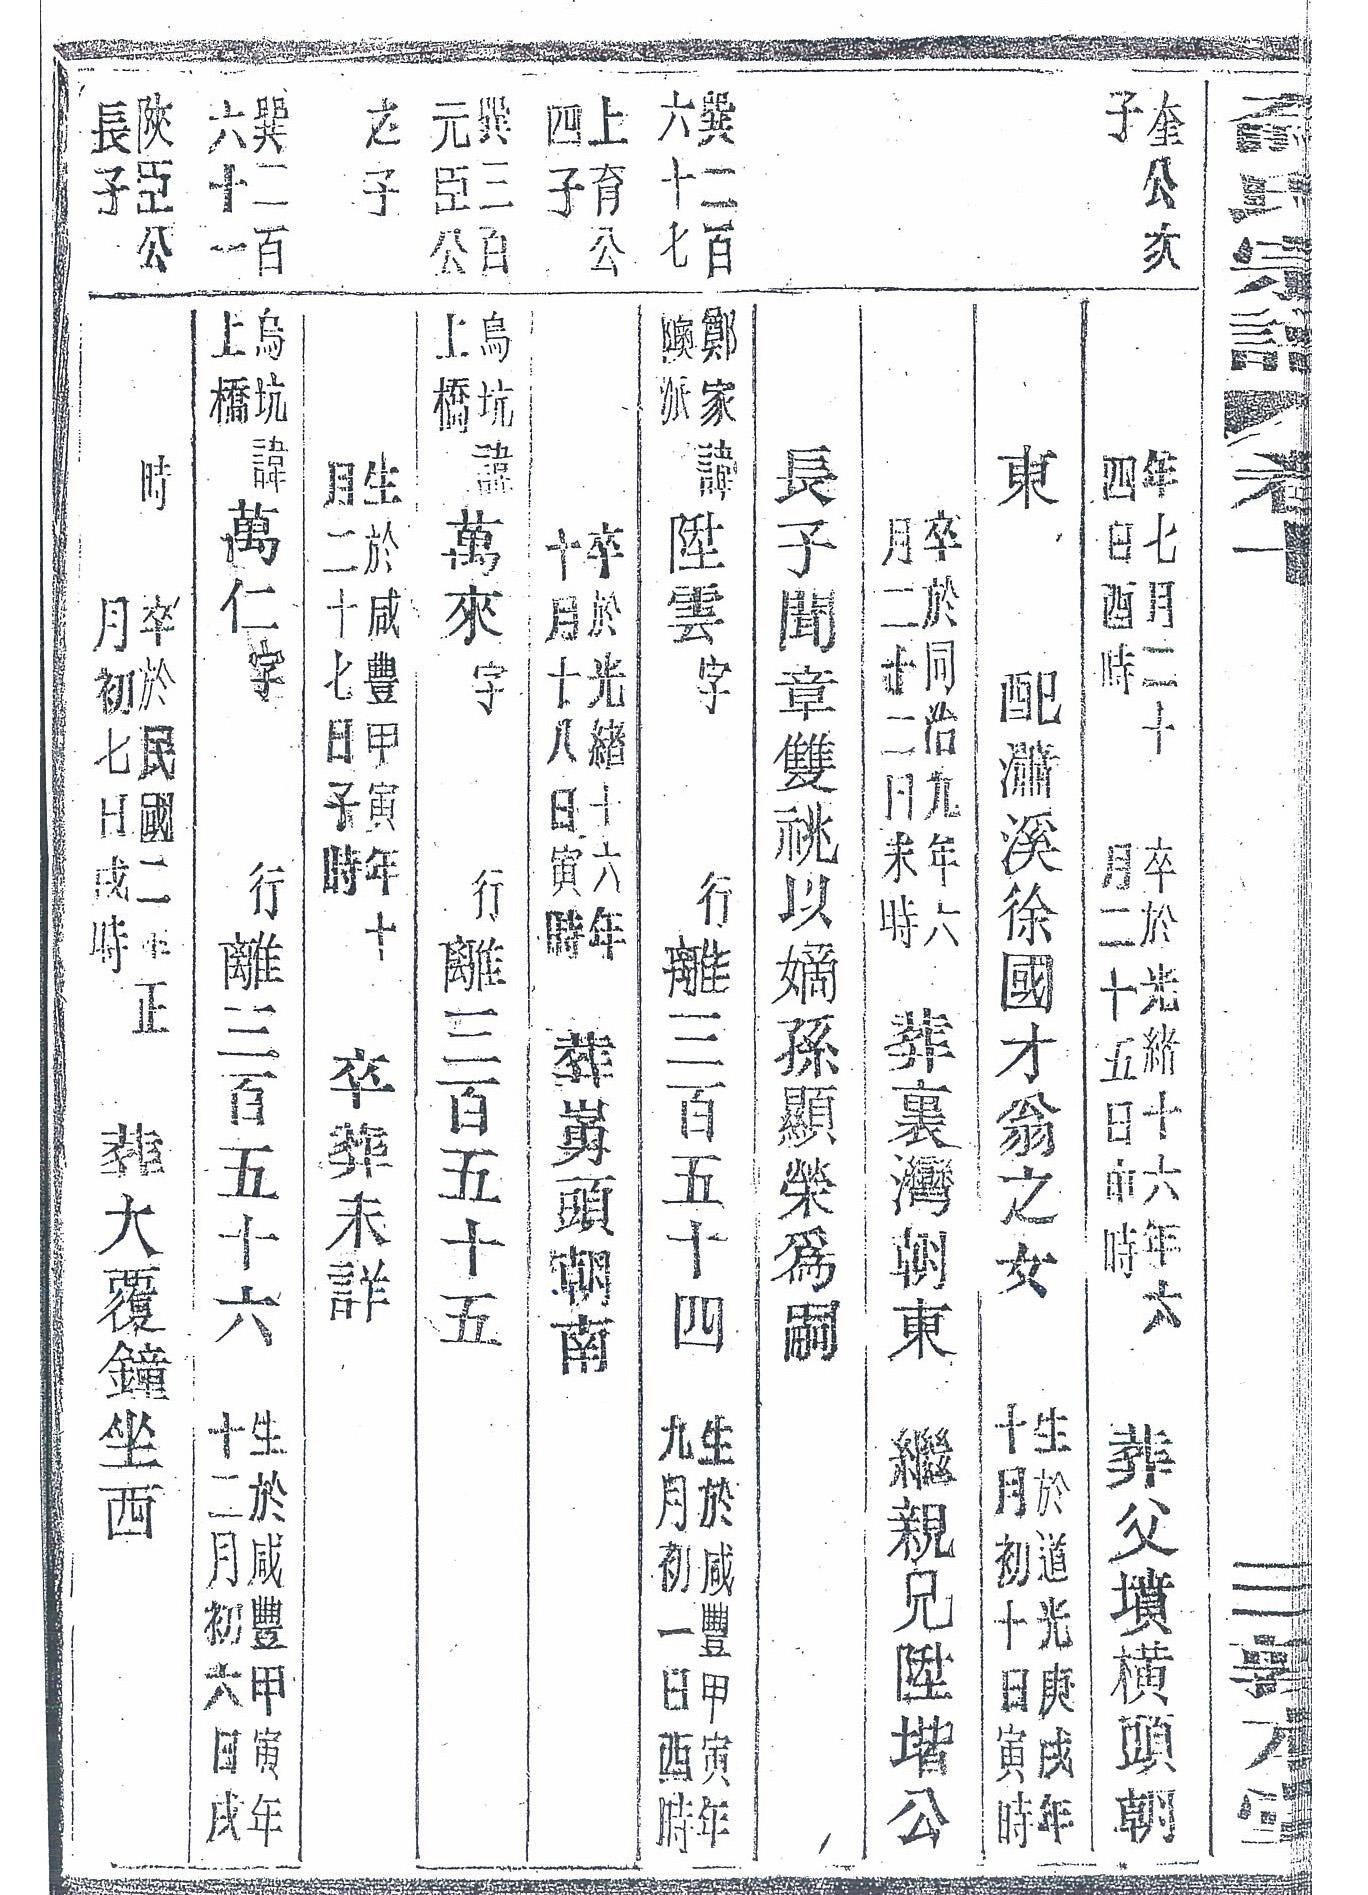 氏宗譜 卷十
奎公次
子
年七月二十
四日酉時
卒於光緒十六年六
月二十五日 時
葬父墳橫頭朝
東
配瀟溪徐國才翁之女
生於道光庚戌年
十月初十日寅時
卒於同治九年六
月二十二日未時
葬裏灣朝東
繼親兄陞堦公
長子聞章雙祧以嫡孫顯榮爲嗣
巽二百
六十七
鄭家
派
諱陞雲字
行離三百五十四
生於咸豐甲寅年
九月初一日酉時
上育公
四子
卒於光緒十六年
十月十八日寅時
葬 頭朝南
巽三百
元臣公
烏坑
上橋
諱萬來字
行離三百五十五
之子
生於咸豐甲寅年十
月二十七日子時
卒葬未詳
巽二百
六十一
烏坑
上橋
諱萬仁字
行離三百五十六
生於咸豐甲寅年
十二月初六日戌
陝臣公
長子
時
卒於民國二年正
月初七日戌時
葬大覆鐘坐西